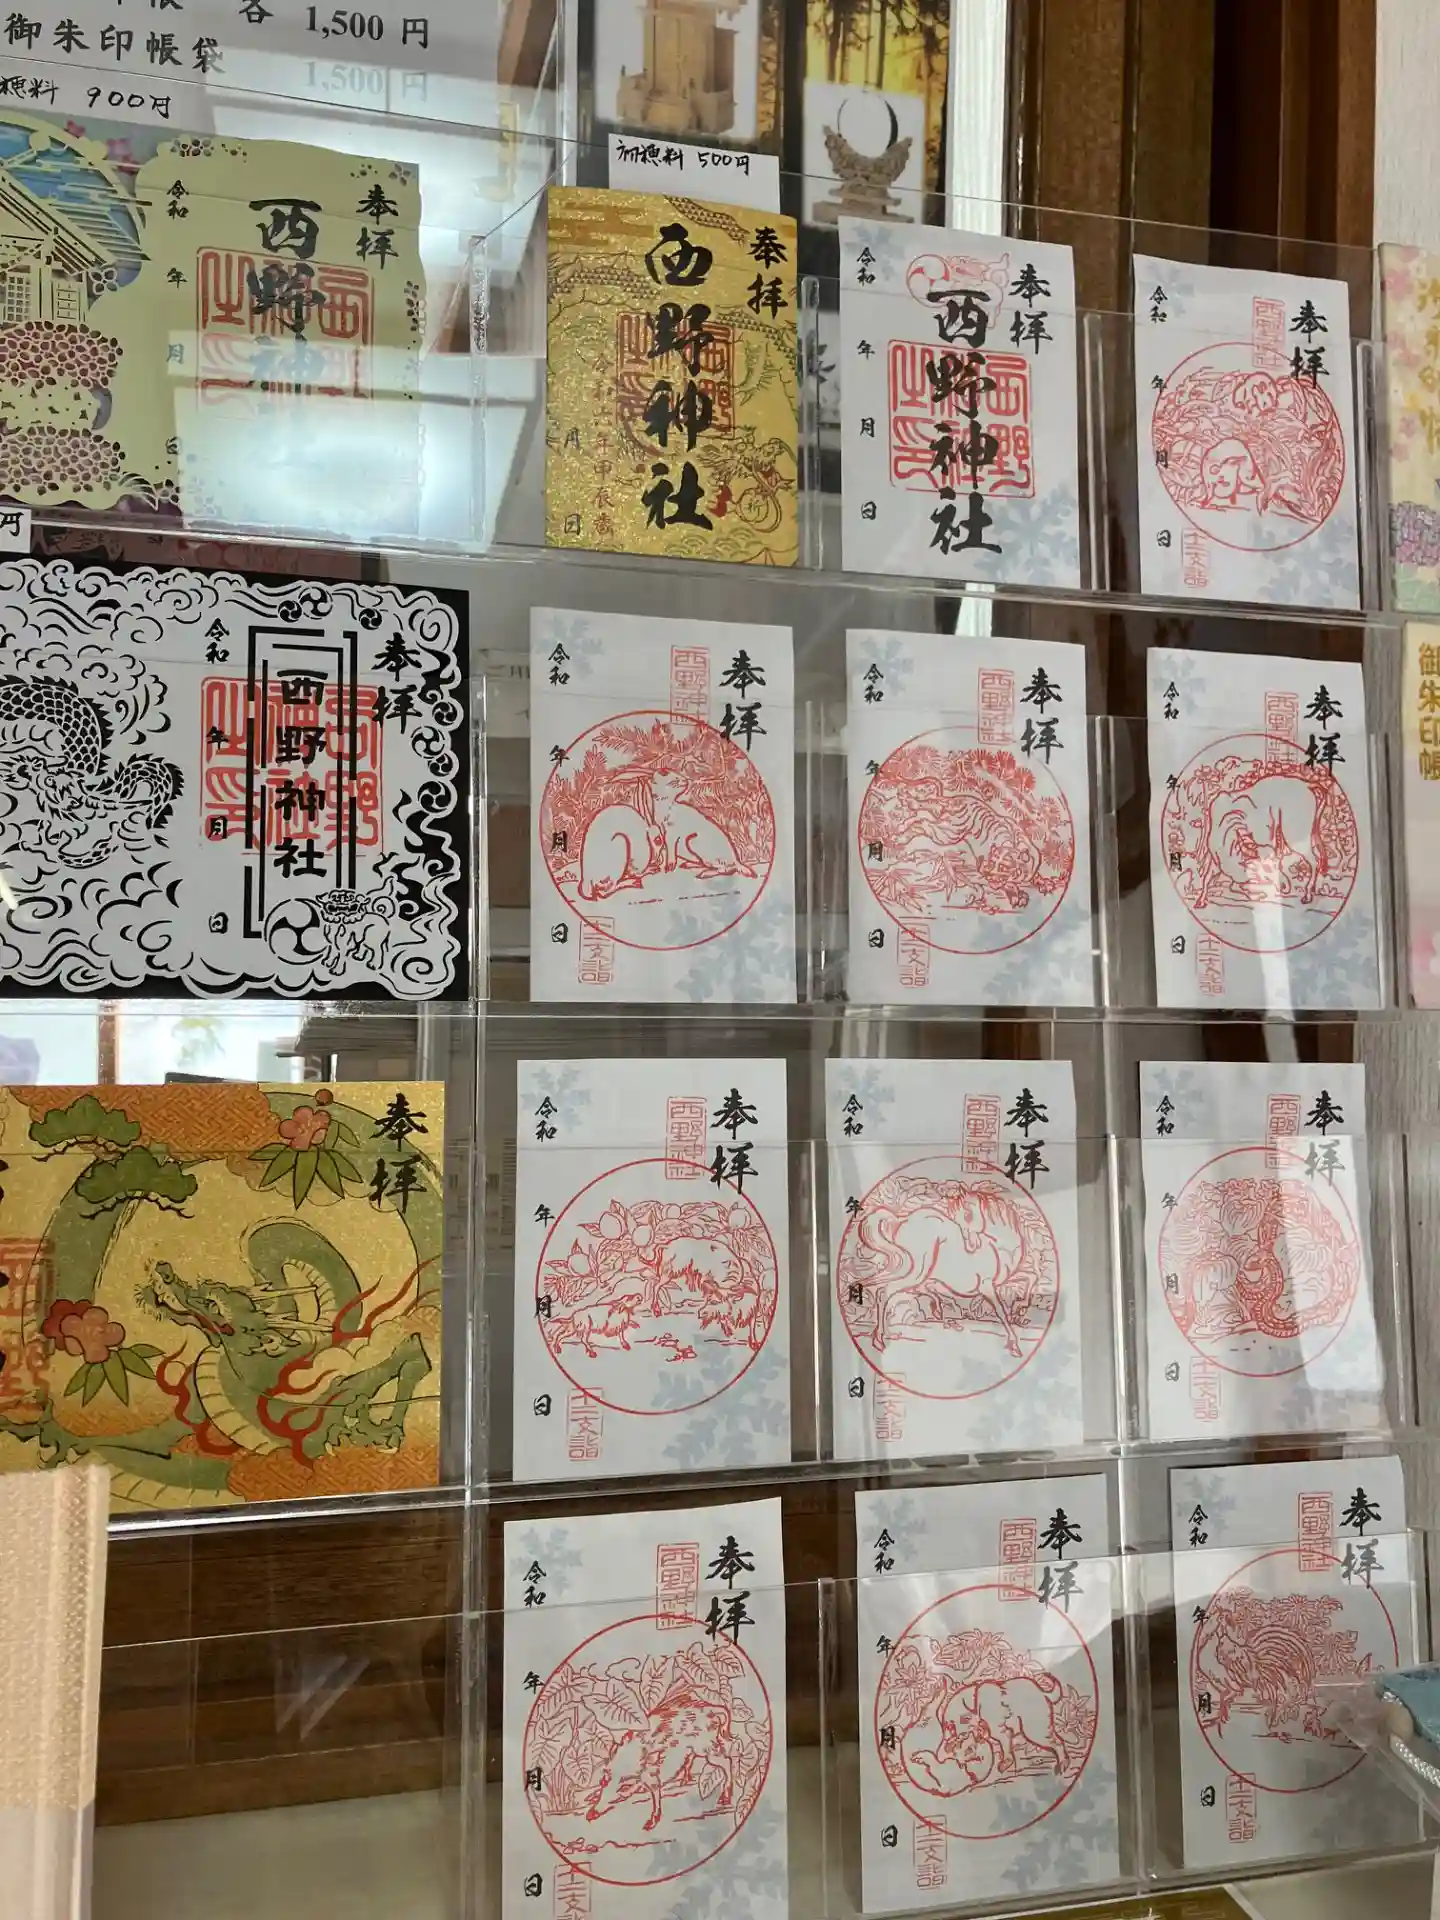 各 1,500 円
御朱印帳袋 1,500 円
穂料 900円
初穂料 500円
奉拝
西野神
令和
年
月
日
奉拝
西野神社
令和六年甲辰歳
月
日
祈
奉拝
西野神社
令和
年
月
日
奉拝
西野神社
令和
年
月
日
十二支詣
円
奉拝
西野神社
令和
年
月
日
奉拝
西野神社
令和
年
月
日
十二支詣
奉拝
西野神社
令和
年
月
日
十二支詣
奉拝
西野神社
令和
年
月
日
十二支詣
御朱印帳
奉拝
奉拝
西野神社
令和
年
月
日
十二支詣
奉拝
西野神社
令和
年
月
日
十二支詣
奉拝
西野神社
令和
年
月
日
十二支詣
奉拝
西野神社
令和
年
月
日
十二支詣
奉拝
西野神社
令和
年
月
日
十二支詣
奉拝
西野神社
令和
年
月
日
十二支詣